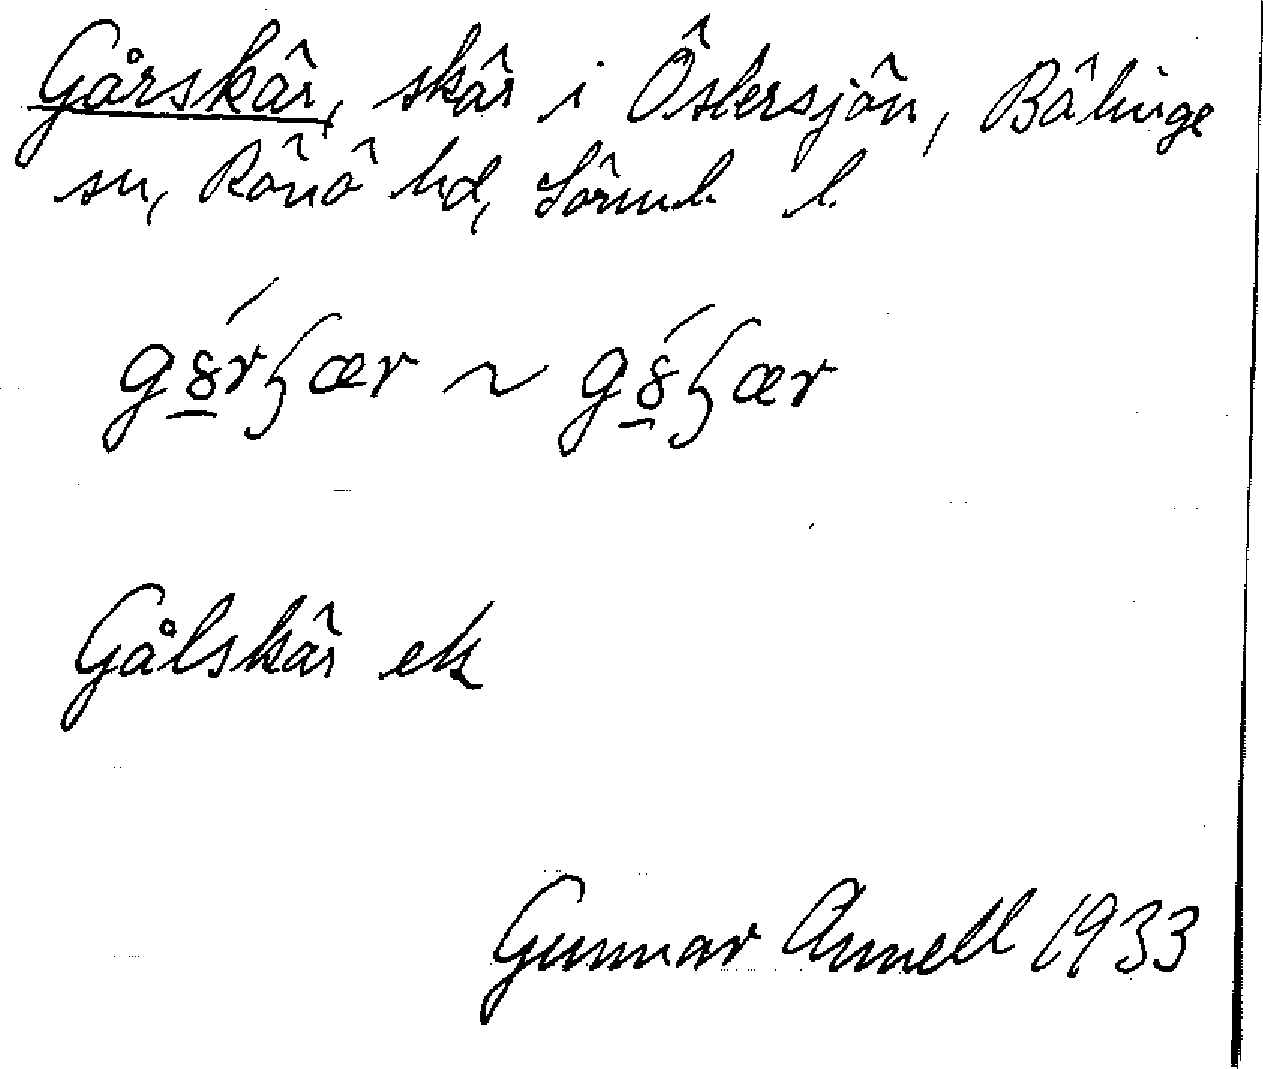 Gårskär, skär i Östersjön, Bälinge
sn, Rönö hd, Sörml. l.
gȣ́rɧær ~ gȣ́ɧær
Gålskär ek
Gunnar Annell 1933